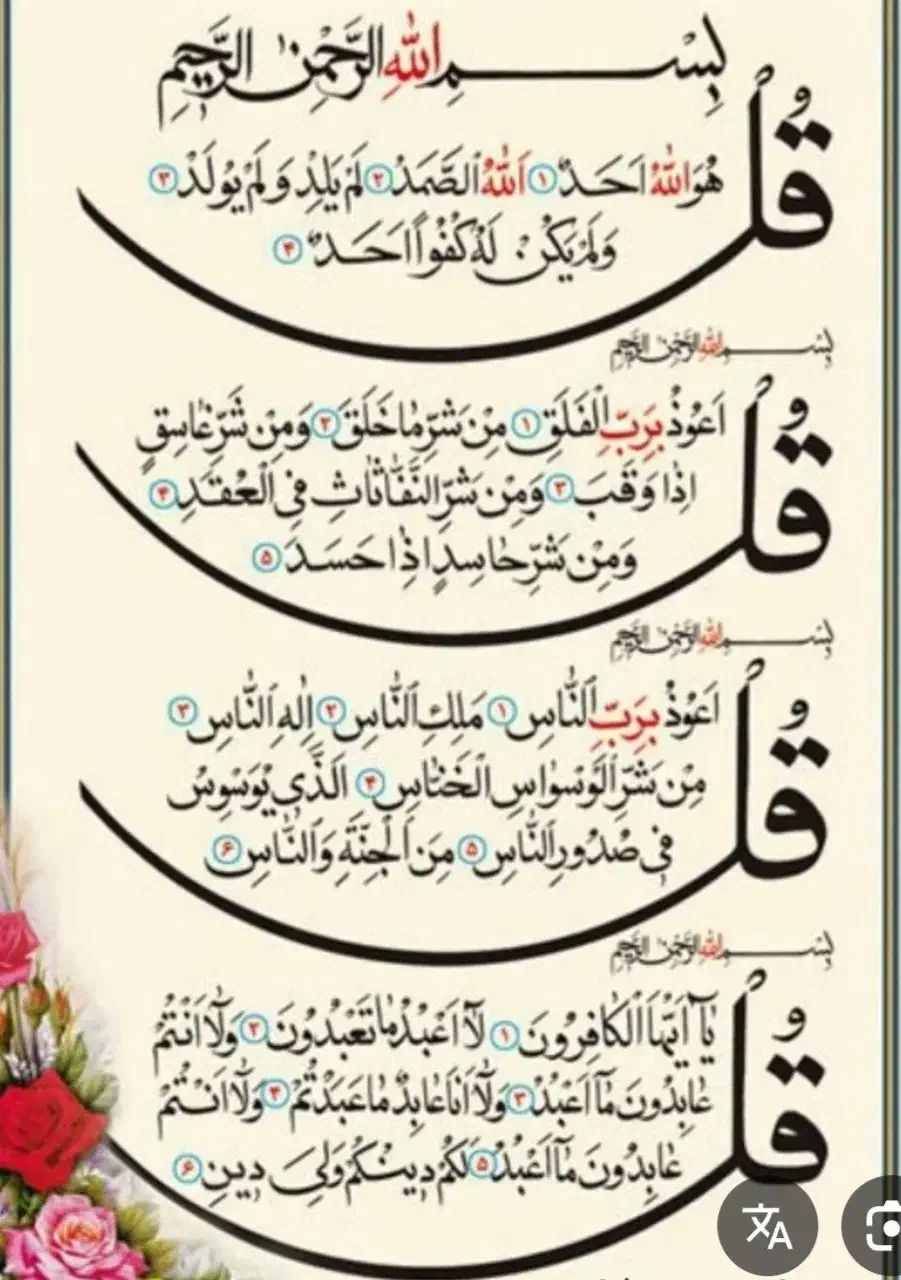 بِسْمِ اللهِ الرَّحْمٰنِ الرَّحِيمِ
قُلْ
هُوَ اللهُ اَحَدٌ ١ اَللهُ الصَّمَدُ ٢ لَمْ يَلِدْ وَ لَمْ يُولَدْ ٣
وَلَمْ يَكُنْ لَهُ كُفُوًا اَحَدٌ ۴
بِسْمِ اللهِ الرَّحْمٰنِ الرَّحِيمِ
قُلْ
اَعُوذُ بِرَبِّ الْفَلَقِ ١ مِنْ شَرِّ مَا خَلَقَ ٢ وَمِنْ شَرِّ غَاسِقٍ
اِذَا وَقَبَ ٣ وَمِنْ شَرِّ النَّفَّاثَاتِ فِي الْعُقَدِ ۴
وَمِنْ شَرِّ حَاسِدٍ اِذَا حَسَدَ ۵
بِسْمِ اللهِ الرَّحْمٰنِ الرَّحِيمِ
قُلْ
اَعُوذُ بِرَبِّ النَّاسِ ١ مَلِكِ النَّاسِ ٢ اِلٰهِ النَّاسِ ٣
مِنْ شَرِّ الْوَسْوَاسِ الْخَنَّاسِ ۴ الَّذِي يُوَسْوِسُ
فِي صُدُورِ النَّاسِ ۵ مِنَ الْجِنَّةِ وَالنَّاسِ ۶
بِسْمِ اللهِ الرَّحْمٰنِ الرَّحِيمِ
قُلْ
يَآ اَيُّهَا الْكَافِرُونَ ١ لَآ اَعْبُدُ مَا تَعْبُدُونَ ٢ وَلَآ اَنْتُمْ
عَابِدُونَ مَآ اَعْبُدُ ٣ وَلَآ اَنَا عَابِدٌ مَا عَبَدْتُمْ ۴ وَلَآ اَنْتُمْ
عَابِدُونَ مَآ اَعْبُدُ ۵ لَكُمْ دِينُكُمْ وَلِيَ دِينِ ۶